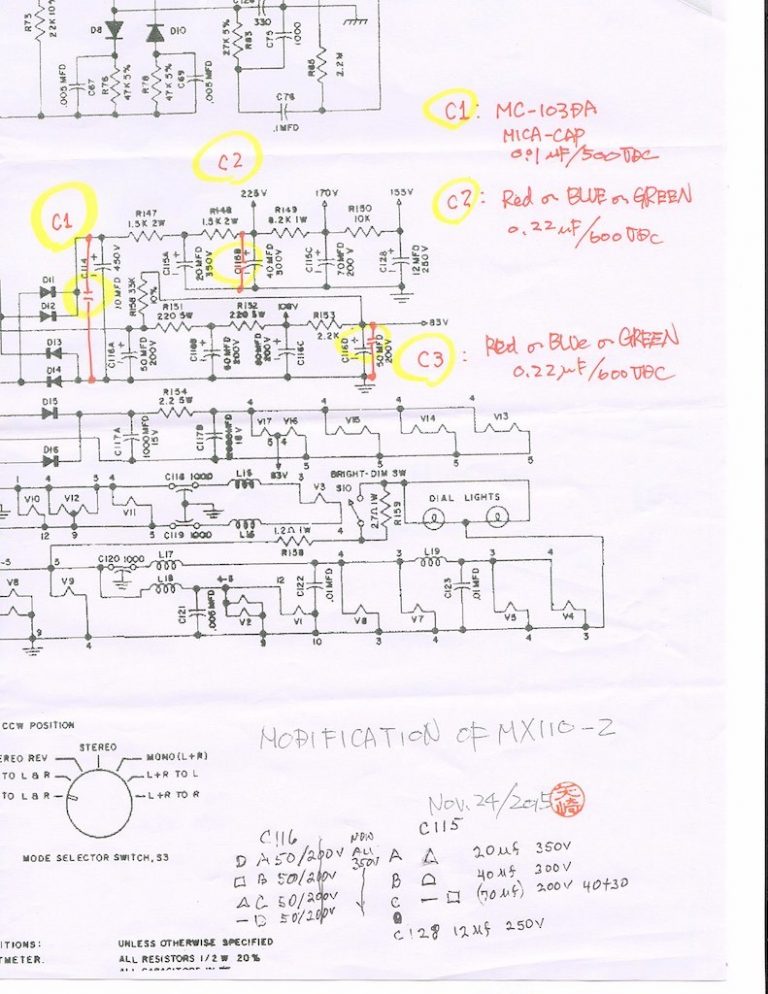 R73
22K 10%
D8
D10
.005MFD
C67
R76
47K 5%
R78
47K 5%
C69
.005MFD
330
27K 5%
R83
C75
1000
R85
2.2K
C76
.1MFD
C1: MC-103DA
MICA-CAP
0.01μF/500VDC
C2
C2: Red or BLUE or GREEN
0.22μF/600VDC
C1
R147
1.5K 2W
R148
1.5K 2W
225V
R149
8.2K 1W
170V
R150
10K
155V
C114
10 MFD 450V
C115A
20MFD
350V
C115B
40 MFD
300V
C115C
70 MFD
200V
C128
12 MFD
250V
D11
D12
R158 33K
10%
R151
220 5W
R152
220 5W
108V
R153
2.2K
83V
D13
D14
C116A
50 MFD
200V
C116B
50 MFD
200V
C116C
200V
C116D
50 MFD
200V
C3: Red or BLUE or GREEN
0.22μF/600VDC
D15
D16
R154
2.2 5W
C117A
1000MFD
15V
C117B
V17
V16
V15
V14
V13
4 4 4 4
5 4 5 5 5
83V
1 4 5 4
V10
V12
V11
12 9 5
C118 1000
L15
C119 1000
3
V3
4
BRIGHT-DIM SW
S10
2.7Ω 1W
R159
DIAL LIGHTS
1.2Ω 1W
R158
C120 1000
L17
L18
4-5
12
4
3
L19
4
4
V8
V9
C121
.005 MFD
V2
V1
C122
.01MFD
V6
V7
C123
.01MFD
V5
V4
9 4 9 10 3 4 5 3
CCW POSITION
STEREO
EREO REV
MONO(L+R)
TO L & R
L+R TO L
TO L & R
L+R TO R
MODE SELECTOR SWITCH, S3
MODIFICATION OF MX110-2
Nov. 24/2015
矢崎
C116
D A 50/200V
□ B 50/200V
△ C 50/200V
— D 50/200V
NOW
ALL
350V
C115
A △ 20μf 350V
B ⌓ 40μf 300V
C — □ (70μf) 200V 40+30
C128 12μf 250V
ITIONS:
TMETER.
UNLESS OTHERWISE SPECIFIED
ALL RESISTORS 1/2 W 20%